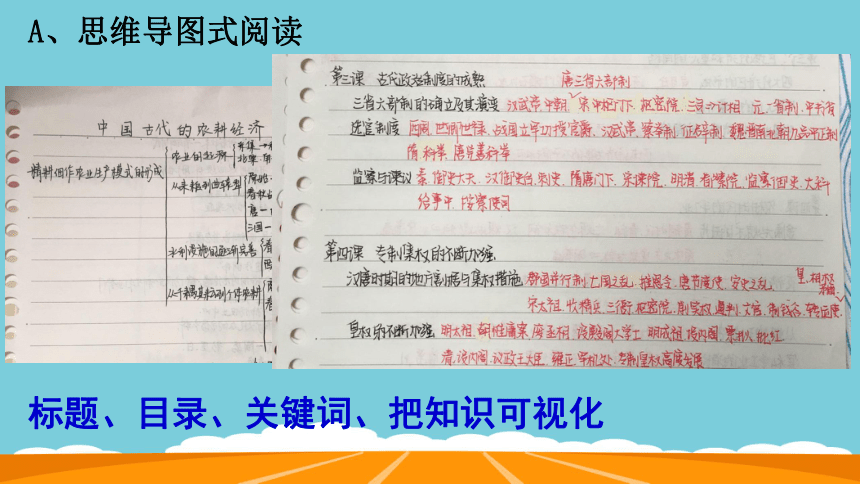 A、思维导图式阅读
中国古代的农耕经济
精耕细作农业生产模式的形成
农业的起源
从耒耜到曲辕犁
唐一
三国一
水利设施的逐渐完善
从千耦其耘到个体农耕
第三课 古代政治制度的成熟 唐三省六部制
三省六部制的确立及其演变 汉武帝中朝、宋中枢门下、枢密院、三司 计相 元一省制、中书省
选官制度 西周、世卿世禄、战国立军功授官爵、汉武帝、察举制、征辟制、魏晋南北朝九品中正制
隋科举、唐完善科举
监察与谏议 秦、御史大夫、汉御史台、刺史、隋唐门下、宋谏院、明清、督察院、监察御史、六科
给事中、按察使司
第四课 专制集权的不断加强
汉唐时期的地方割据与集权措施 郡国并行制、七国之乱、推恩令、唐节度使、安史之乱
皇、相权
宋太祖、收精兵、三衙、枢密院、削实权、通判、文官、制钱谷、转运使
皇权的不断加强 明太祖、胡惟庸案、废丞相、设殿阁大学士 明成祖、设内阁、票拟、批红
清、设内阁、议政王大臣、雍正、军机处、专制皇权高度发展
标题、目录、关键词、把知识可视化